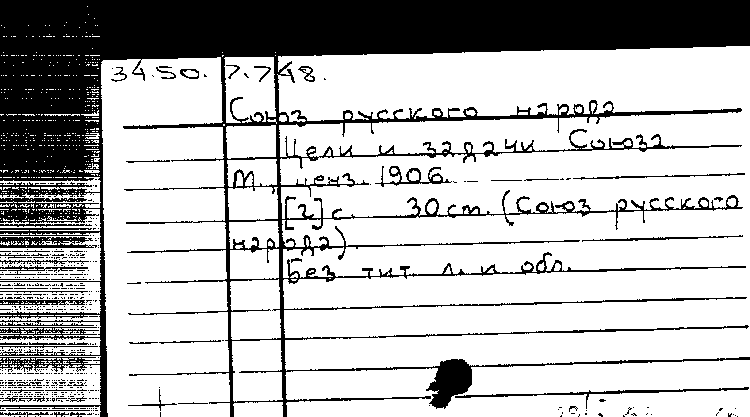 34.50. 7.748.
Союз русского народа
Цели и задачи Союза
М., ценз. 1906.
[2] с. 30 см. (Союз русского
народа).
Без тит. л. и обл.